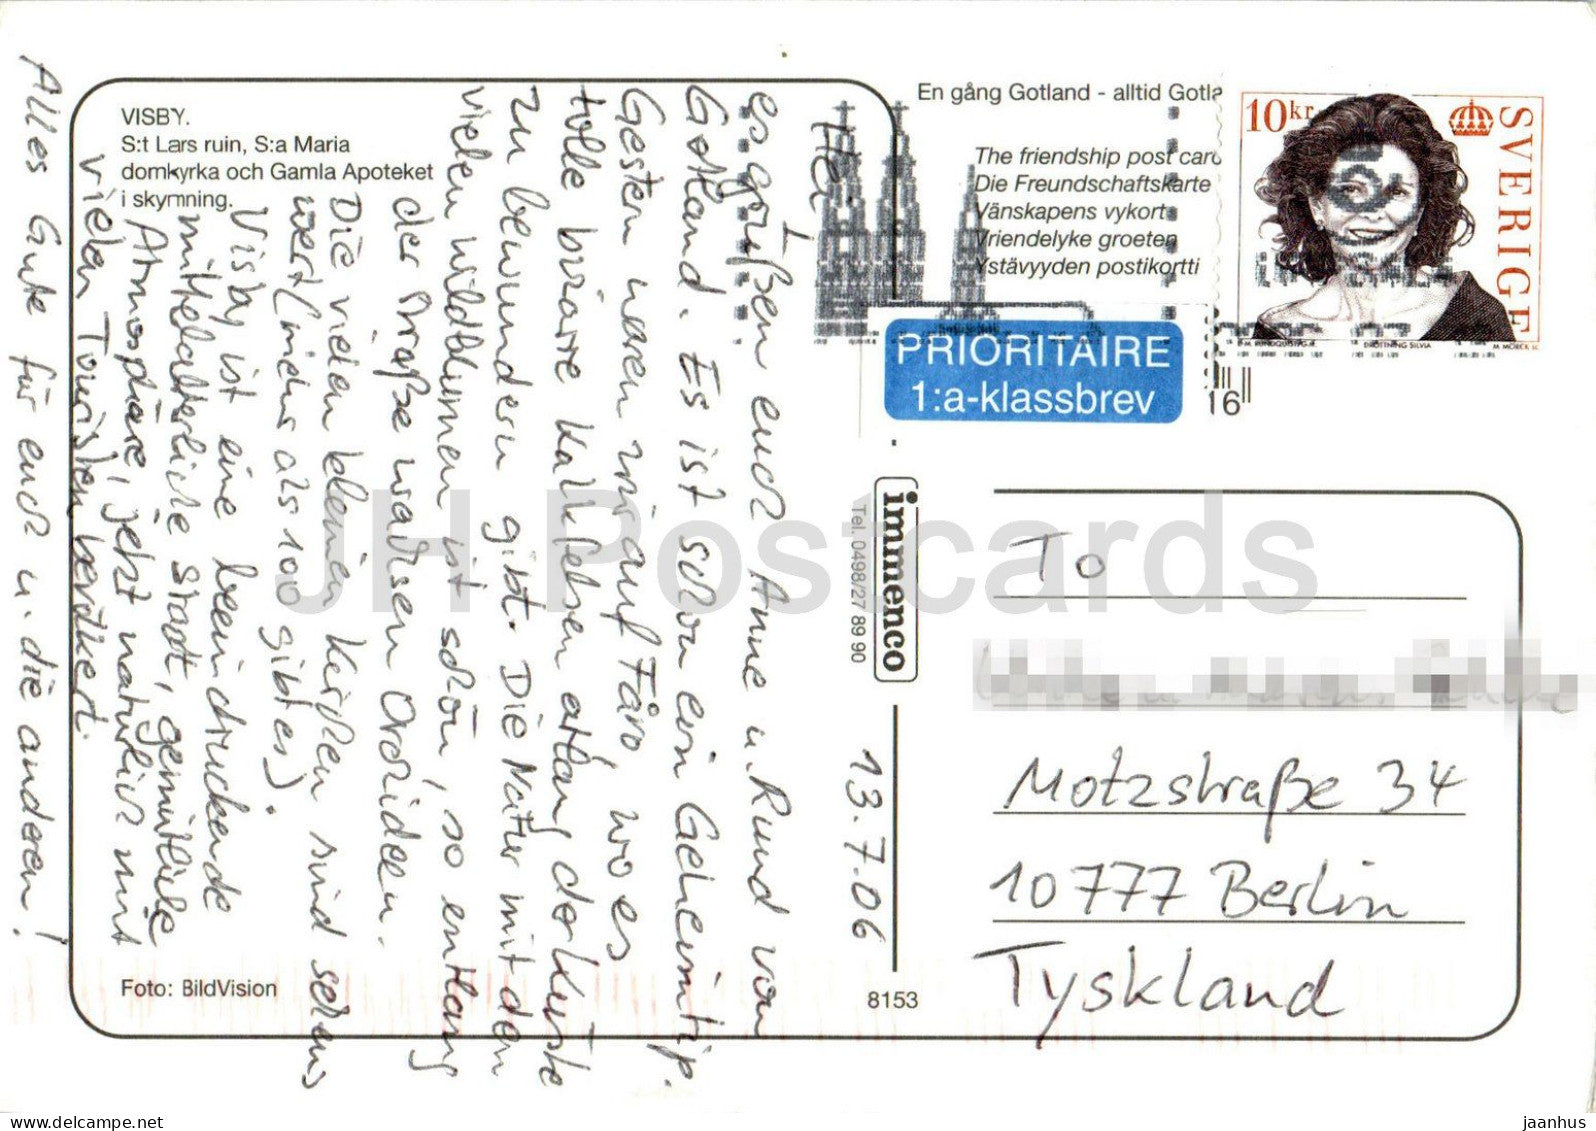 VISBY.
S:t Lars ruin, S:a Maria
domkyrka och Gamla Apoteket
i skymning.
Foto: BildVision
En gång Gotland - alltid Gotla
The friendship post card
Die Freundschaftskarte
Vänskapens vykort
Vriendelyke groeten
Ystävyyden postikortti
10kr
SVERIGE
DROTTNING SILVIA
M MÖRCK SC
PRIORITAIRE
1:a-klassbrev
16
immenco
Tel. 0498/27 89 90
8153
13.7.06
Hei
es grüßen euch Anne u. Rund von
Gotland. Es ist schon ein Geheimtip.
Gestern waren wir auf Fårö, wo es
tolle bizarre Kalkfelsen entlang der Küste
zu bewundern gibt. Die Natur mit den
vielen Wildblumen ist schön, so entlang
der Straße wachsen Orchideen.
Die vielen kleinen Kirchen sind sehens
wert (mehr als 100 gibt es).
Visby ist eine beeindruckende
mittelalterliche Stadt, gemütliche
Atmosphäre, jetzt natürlich mit
vielen Touristen bevölkert.
Alles Gute für euch u. die anderen!
To
Motzstraße 34
10777 Berlin
Tyskland
JH Postcards
www.delcampe.net
jaanhus